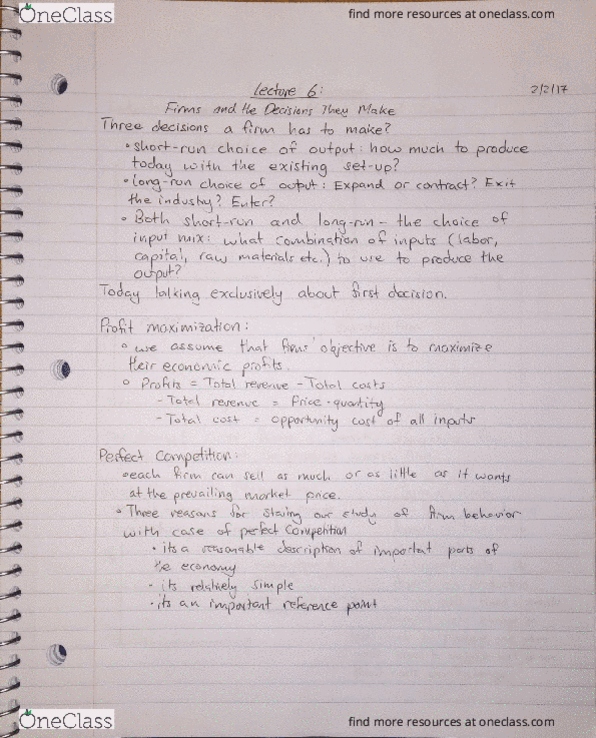 OneClass
find more resources at oneclass.com
Lecture 6:
2/2/17
Firms and the Decisions They Make
Three decisions a firm has to make?
• short-run choice of output: how much to produce
today with the existing set-up?
• long-run choice of output: Expand or contract? Exit
the industry? Enter?
• Both short-run and long-run - the choice of
input mix: what combination of inputs (labor,
capital, raw materials etc.) to use to produce the
output?
Today talking exclusively about first decision.
Profit maximization:
• we assume that firms' objective is to maximize
their economic profits.
• Profits = Total revenue - Total costs
- Total revenue = Price · quantity
- Total cost = opportunity cost of all inputs
Perfect Competition:
• each firm can sell as much or as little as it wants
at the prevailing market price.
• Three reasons for our study of firm behavior
with case of perfect competition
• its a reasonable description of important parts of
the economy
• its relatively simple
• its an important reference point
OneClass
find more resources at oneclass.com